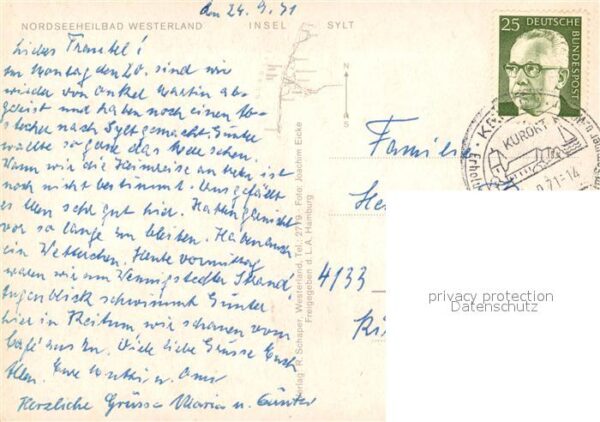 den 24.9.71
NORDSEEHEILBAD WESTERLAND INSEL SYLT
25 DEUTSCHE BUNDESPOST
Liebes Frauchel!
Am Montag den 20. sind wir
wieder von Onkel Martin ab-
gereist und haben noch einen Ab-
stecher nach Sylt gemacht. Günter
wollte so gerne das Meer sehen.
Wann wir die Heimreise antreten ist
noch nicht bestimmt. Uns gefällt
es hier sehr gut hier. Haben gar nicht
vor so lange zu bleiben. Haben auch
ein Wetterchen. Heute vormittag
waren wir am Wennigstedter Strand,
Augenblick schwimmt Günter
hier in Keitum wir schauen vom
Café aus zu. Viele liebe Grüsse Euch
Allen. Eure Mutti u. Omi
Herzliche Grüsse Maria u. Günter
Familie
He
4133
KURORT
71-14
N
S
Verlag R. Schaper, Westerland, Tel.: 2779 · Foto: Joachim Eicke
Freigegeben d. L.A. Hamburg
privacy protection
Datenschutz